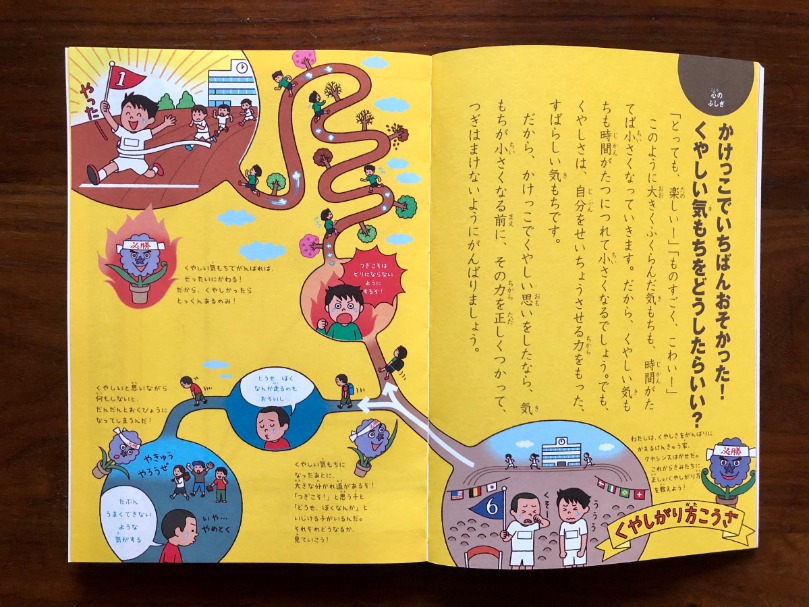 心の
ふしぎ
かけっこでいちばんおそかった！
くやしい気もちをどうしたらいい？
「とっても、楽しい！」「ものすごく、こわい！」
このように大きくふくらんだ気もちも、時間がた
てば小さくなっていきます。だから、くやしい気も
ちも時間がたつにつれて小さくなるでしょう。でも、
くやしさは、自分をせいちょうさせる力をもった、
すばらしい気もちです。
だから、かけっこでくやしい思いをしたなら、気
もちが小さくなる前に、その力を正しくつかって、
つぎはまけないようにがんばりましょう。
わたしは、くやしさをがんばりに
かえるけんきゅう家、
クヤシンスはかせだ。
これからきみたちに
正しいくやしがり方
を教えよう！
必勝
くやしがり方こうさ
6
くそー
ううう
くやしい気もちに
なったあとに、
大きな分かれ道があるぞ！
「つぎこそ！」と思う子と
「どうせ、ぼくなんか」と
いじける子がいるんだ。
それぞれどうなるか、
見ていこう！
つぎこそは
ビリにならない
ように
するぞ！
やった
1
必勝
くやしい気もちでがんばれば、
ぜったいにかわる！
だから、くやしかったら
とっくんあるのみ！
どうせ ぼく
なんか走るのも
おそいし
くやしいと思いながら
何もしないと、
だんだんとおくびょうに
なってしまうんだ！
やきゅう
やろうぜ
たぶん
うまくできない
ような
気がする
いや…
やめとく